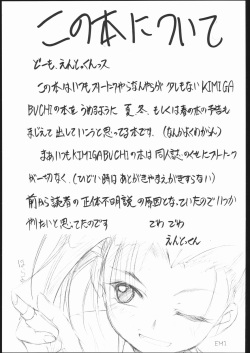 この本について
どーも、えんどっくんっス
この本はいつもフリートークやらなんやらが少しもないKIMIGA
BUCHIの本を、うめるように夏、冬、もしくは春の本の予告も
まじえて出していこうと思ってる本です。(なんかよくわからん)
まあいつもKIMIGABUCHIの本は同人誌のくせにフリートーク
が一切なく、(ひどい時はあとがきやまえがきすらない)
前から読者の正体不明説の原因となっていたのでいつか
やりたいと思ってたのです でわでわ
えんどっくん
EMI